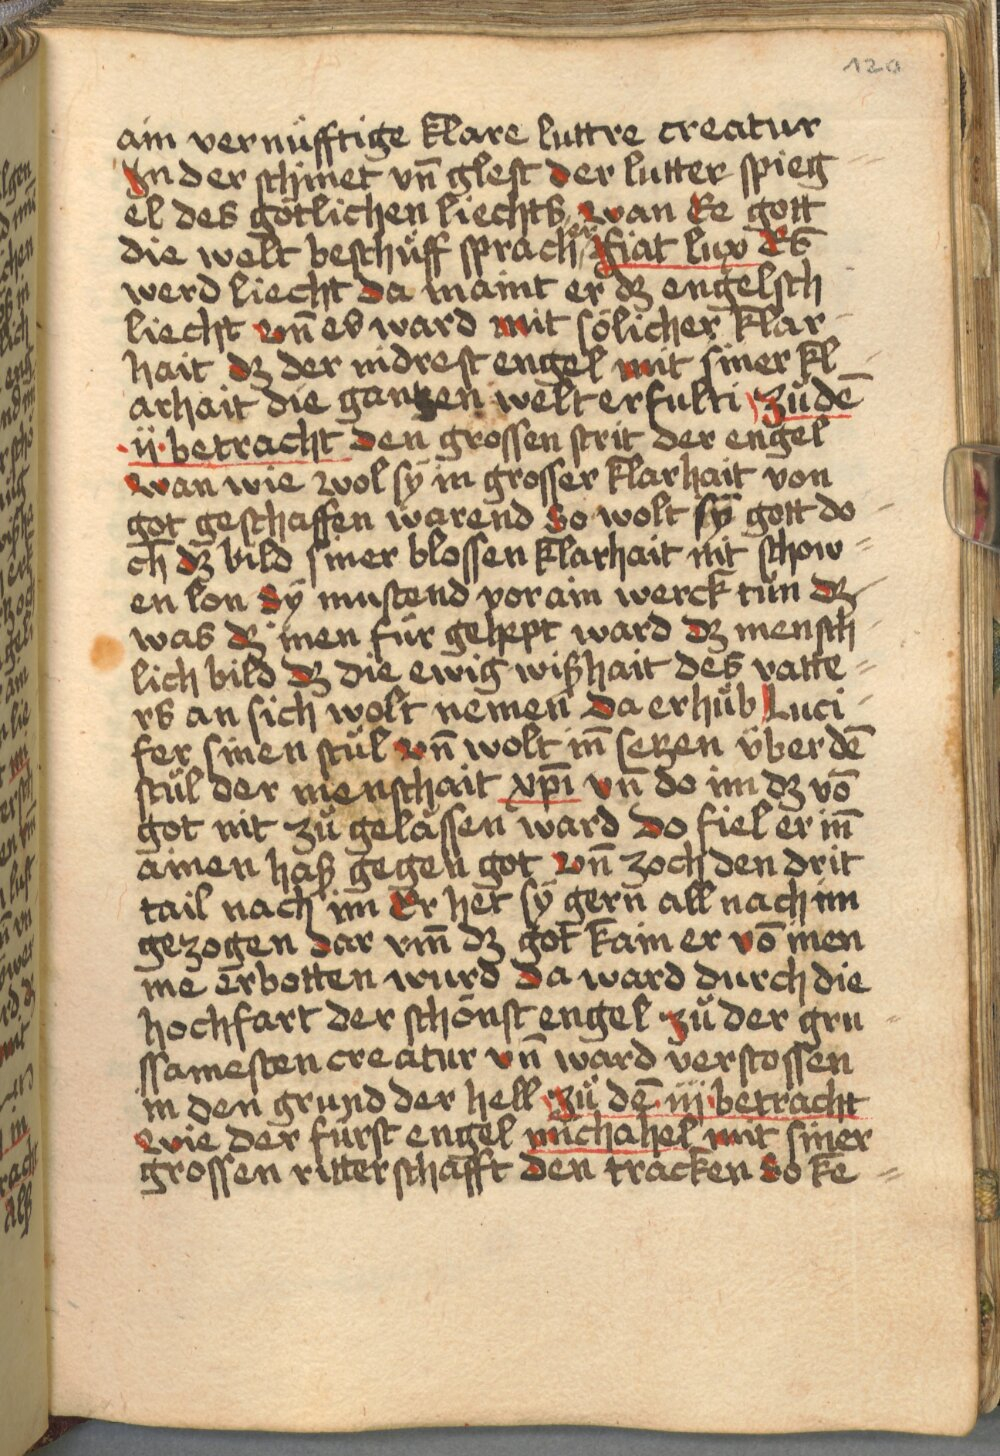 120
ain vernüfftige klare luttre creatur
In der schinet vn̄ glest der lutter spieg
el des götlichen liechts wan Ee gott
die welt beschůff sprach er fiat lux Es
werd liecht da maint er dz engelsch
liecht vn̄ es ward mit sölicher klar
hait dz der nidrest engel mit siner kl
arhait die gantzen welt erfulti Zů dē
ij betracht den grossen strit der engel
wan wie wol sÿ in grosser klarhait von
got geschaffen warend So wolt sÿ gott do
ch dz bild siner blossen klarhait nit schow
en lon Sÿ mustend vor ain werck tůn dz
was dz inen für gehept ward dz mensch
lich bild dz die ewig wißhait des vatte
rs an sich wolt nemen Da erhůb Luci
fer sinen stůl vn̄ wolt in̄ sezen v̈ber dē
stůl der menschait xp̄i vn̄ do im dz vō
got nit zů gelassen ward Do fiel er in̄
ainen haß gegen got vn̄ zoch den drit
tail nach im Er het sÿ gern all nach im
gezogen dar vm̄ dz got kain er vō inen
me erbotten wurd Da ward durch die
hochfart der schönst engel zů der gru
ssamesten creatur vn̄ ward verstossen
in den grund der hell Zů dē iij betracht
wie der fürst engel michahel mit siner
grossen ritterschafft den tracken So ke